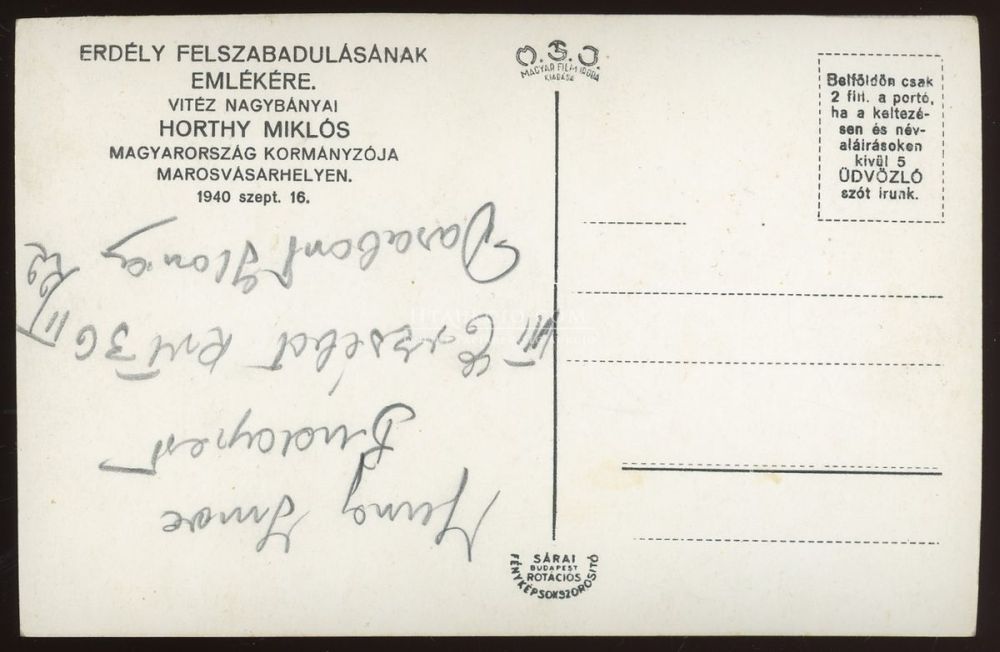 ERDÉLY FELSZABADULÁSÁNAK
EMLÉKÉRE.
VITÉZ NAGYBÁNYAI
HORTHY MIKLÓS
MAGYARORSZÁG KORMÁNYZÓJA
MAROSVÁSÁRHELYEN.
1940 szept. 16.
O.S.J.
MAGYAR FILM IRODA
KIADÁSA
Belföldön csak
2 fill. a portó,
ha a keltezé-
sen és név-
aláirásoken
kivül 5
ÜDVÖZLŐ
szót irunk.
Imre
Budapest
VII Erzsébet krt 36 II/
Darabont Ilona
SÁRAI
BUDAPEST
ROTACIOS
FÉNYKÉPSOKSZOROSITÓ